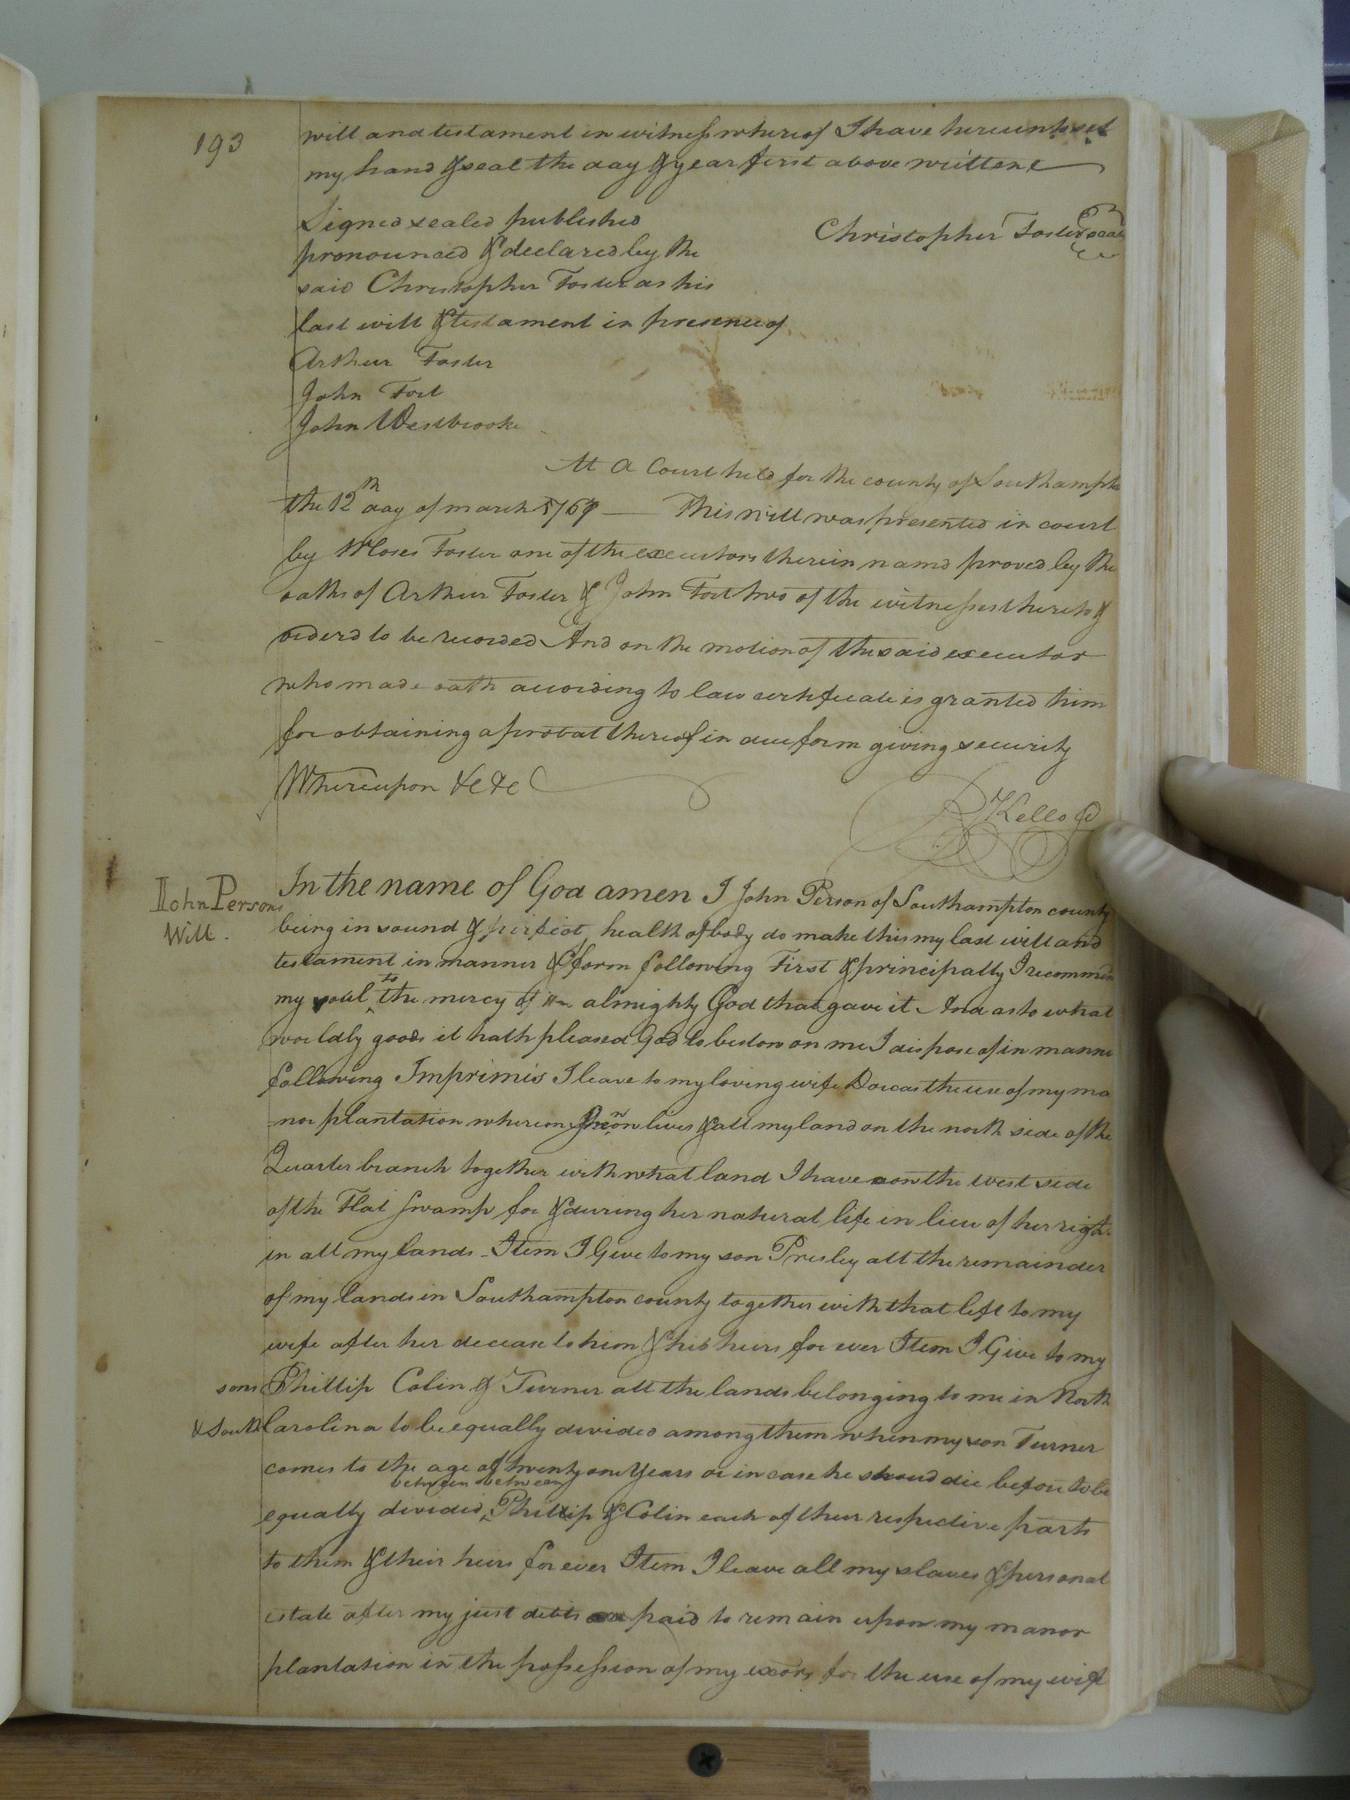 193
will and testament in witness whereof I have hereunto set
my hand & seal the day & year first above written
Signed sealed published
Christopher Foster Seal
pronounced & declared by the
said Christopher Foster as his
last will & testament in presence of
Arthur Foster
John Fort
John Westbrook
At a Court held for the county of Southampto
the 12th day of march 1767 — This will was presented in court
by Moses Foster one of the executors therein namd proved by the
oaths of Arthur Foster & John Fort two of the witnesses thereto &
orderd to be recorded And on the motion of the said executor
who made oath according to law certificate is granted him
for obtaining a probat thereof in due form giving security
Whereupon &c &c
R Kello
John Persons
Will.
In the name of God amen I John Person of Southampton county
being in sound & perfect health of body do make this my last will and
testament in manner & form following First & principally I recommend
my soul to the mercy of the almighty God that gave it And as to what
worldly goods it hath pleased God to bestow on me I dispose of in manner
following Imprimis I leave to my loving wife Dorcas the use of my ma
nor plantation whereon now lives & all my land on the north side of the
Quarter branch together with what land I have on the west side
of the Flat Swamp for & during her natural life in lieu of her right
in all my lands - Item I Give to my son Presley all the remainder
of my lands in Southampton county together with that left to my
wife after her decease to him & his heirs for ever Item I Give to my
sons Phillip Colin & Turner all the lands belonging to me in North
& South Carolina to be equally divided among them when my son Turner
comes to the age of twenty one Years or in case he should die before to be
between between
equally divided Phillip & Colin each of their respective parts
to them & their heirs for ever Item I leave all my slaves & personal
estate after my just debts paid to remain upon my manor
plantation in the possession of my exors for the use of my wife